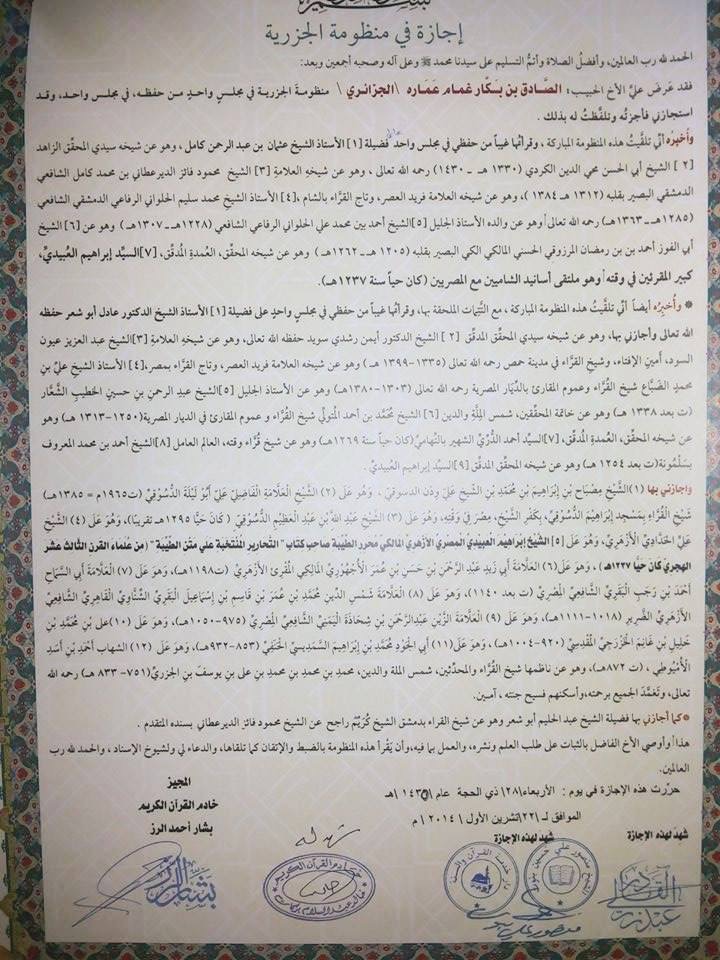 إجازة في منظومة الجزرية
الحمد لله رب العالمين، وأفضل الصلاة وأتم التسليم على سيدنا محمد ﷺ وعلى آله وصحبه أجمعين وبعد:
فقد عَرضَ عليَّ الأخ الحبيب: الصَّادق بن بَكَّار غمام عَمَاره \الجزائري\ منظومةَ الجزرية في مجلسٍ واحدٍ من حفظه، في مجلس واحد، وقد
استجازني فأجزتُه وتلفَّظتُ له بذلك .
وأُخبِرُه أنِّي تلقَّيتُ هذه المنظومة المباركة ، وقرأتُها غيباً من حفظي في مجلس واحد على فضيلة [١] الأستاذ الشيخ عثمان بن عبد الرحمن كامل، وهو عن شيخه سيدي المحقق الزاهد
[٢] الشيخ أبي الحسن محي الدين الكردي (١٣٣٠ هـ - ١٤٣٠) رحمه الله تعالى ، وهو عن شيخه العلامة [٣] الشيخ محمود فائز الديرعطاني بن محمد كامل الشافعي
الدمشقي البصير بقلبه (١٣١٢ هـ ١٣٨٤ )، وهو عن شيخه العلامة فريد العصر، وتاج القرَّاء بالشام، [٤] الأستاذ الشيخ محمد سليم الحلواني الرفاعي الدمشقي الشافعي
(١٢٨٥هـ-١٣٦٣هـ) رحمه الله تعالى وهو عن والده الأستاذ الجليل [٥]الشيخ أحمد بين محمد علي الحلواني الرفاعي الشافعي (١٢٢٨هـ-١٣٠٧هـ) وهو عن [٦] الشيخ
أبي الفوز أحمد بن بن رمضان المرزوقي الحسني المالكي المكي البصير بقلبه (١٢٠٥هـ-١٢٦٢هـ) وهو عن شيخه المحقِّق، العُمدةِ المدقّق، [٧]السيِّد إبراهيم العُبيديّ،
كبير المقرئين في وقته / وهو ملتقى أسانيد الشاميين مع المصريين (كان حياً سنة ١٢٣٧هـ).
* وأُخبِرُه أيضاً أنِّي تلقَّيتُ هذه المنظومة المباركة ، مع التتِمات الملحقة بها، وقرأتُها غيباً من حفظي في مجلسٍ واحدٍ على فضيلة [١] الأستاذ الشيخ الدكتور عادل أبو شعر حفظه
الله تعالى وأجازني بها، وهو عن شيخه سيدي المحقق المدقق [٢] الشيخ الدكتور أيمن رشدي سويد حفظه الله تعالى، وهو عن شيخه العلامةِ [٣]الشيخ عبد العزيز عيون
السود، أمين الإفتاء، وشيخ القرَّاء في مدينة حمص رحمه الله تعالى (١٣٣٥-١٣٩٩ هـ) وهو عن شيخه العلامة فريد العصر، وتاج القرَّاء بمصر،[٤] الأستاذ الشيخ عليّ بن
محمدٍ الضَّبَّاع شيخ القُرَّاء وعموم المقارئ بالدِّيار المصرية رحمه الله تعالى (١٣٠٣-١٣٨٠هـ) وهو عن الأستاذ الجليل [٥]الشيخ عبد الرحمنِ بنِ حسينٍ الخطيبِ الشَّعَّار
(ت بعد ١٣٣٨ هـ) وهو عن خاتمة المحقِّقين، شمس المِلَّةِ والدين [٦] الشيخ مُحَمَّد بن أحمد المُتولّي شيخ القُرَّاء و عموم المقارئ في الديار المصرية(١٢٥٠-١٣١٣هـ) وهو
عن شيخه المحقِّق، العُمدةِ المدقّق، [٧]السيّد أحمد الدُّرِّيّ الشهير بالتِّهاميّ (كان حياً سنة ١٢٦٩هـ) وهو عن شيخ قُرَّاء وقته، العالم العامل [٨]الشيخ أحمد بن محمد المعروف
بِسَلْمُونة(ت بعد ١٢٥٤ هـ) وهو عن شيخه المحقق المدقق [٩]السيِّد إبراهيم العُبيديّ .
واجازني بها (١)الشَّيْخ مِصْبَاح بْنِ إِبْرَاهِيمَ بْنِ مُحَمَّدِ بْنِ الشَّيْخِ عَلِيّ وِدَن الدسوقيّ ، وَهُوَ عَلَى (٢) الشَّيْخِ العَلَّامَةِ الْفَاضِلِ عَلِيّ أَبُو لَيْلَةَ الدُّسُوقِيّ (ت١٩٦٥م = ١٣٨٥هـ)
شَيْخِ الْقُرَّاءِ بِمَسْجِدِ إِبْرَاهِيمَ الدُّسُوقِيّ، بِكَفْرِ الشَّيْخِ، مِصْرَ فِي وَقْتِهِ، وَهُوَ عَلَى (٣) الشَّيْخِ عَبْدِ اللهِ بْنِ عَبْدِ الْعَظِيمِ الدُّسُوقِيّ ( كَانَ حَيًّا ١٢٩٥هـ تقريبًا)، وَهُوَ عَلَى (٤) الشَّيْخِ
عَلِيّ الحَدَّادِيّ الأَزْهَرِيّ، وَهُوَ عَلَى [٥] الشَّيْخِ إِبْرَاهِيمَ العُبَيْدِيّ المِصْرِيّ الأَزْهَرِيّ المَالِكِيّ مُحَرِّر الطَّيِّبَة صاحب كتاب "التحارير المُنْتخبة على متن الطَّيِّبَة" (من علماء القرن الثالث عشر
الهجري كانَ حَيًّا ١٢٣٧هـ )، وَهُوَ عَلَى (٦) العَلَّامَةِ أَبِي زَيْدٍ عَبْدِ الرَّحْمَنِ بْنِ حَسَنِ بْنِ عُمَرَ الأُجْهُورِيّ المَالِكِيّ المُقْرِئ الأَزْهَرِيّ (ت١١٩٨هـ)، وَهُوَ عَلَى (٧) العَلَّامَةِ أَبِي السَّمَاحِ
أَحْمَدَ بْنِ رَجَبٍ البَقَرِيّ الشَّافِعِيّ المِصْرِيّ (ت بعد ١١٤٠ هـ)، وَهُوَ عَلَى (٨) العَلَّامَةِ شَمْسِ الدِّينِ مُحَمَّدِ بْنِ عُمَرَ بْنِ قَاسِمِ بْنِ إِسْمَاعِيلَ البَقَرِيّ الشِّنَّاوِيّ القَاهِرِيّ الشَّافِعِيّ
الأَزْهَرِيّ الضَّرِيرِ (١٠١٨-١١١١هـ)، وَهُوَ عَلَى (٩) العَلَّامَةِ الزَّيْنِ عَبْدِالرَّحْمَنِ بْنِ شِحَاذَةَ اليَمَنِيّ الشَّافِعِيّ المِصْرِيّ (٩٧٥-١٠٥٠هـ)، وَهُوَ عَلَى (١٠)علي بن مُحَمَّدِ بْنِ
خَلِيلِ بْنِ غَانِمٍ الخَزْرَجِيّ المَقْدِسِيّ (٩٢٠-١٠٠٤هـ)، وَهُوَ عَلَى(١١) أَبِي الجُودِ مُحَمَّدِ بْنِ إِبْرَاهِيمَ السَّمَدِيسِيّ الحَنَفِيّ (٨٥٣-٩٣٢هـ)، وَهُوَ عَلَى (١٢) الشهاب أَحْمَدَ بْنِ أَسَدٍ
الأُمْيُوطِيّ ، (ت ٨٧٢هـ)، وَهُوَ عن ناظمها شيخ القُرَّاء والمحدّثين، شمس الملة والدين، محمدِ بن محمدِ بن محمدِ بنِ علي بن يوسف بن الجزريّ(٧٥١- ٨٣٣ هـ) رحمه الله
تعالى، وتَغَمَّدَ الجميع برحمته، وأسكنهم فسيح جنته ، آمين.
*كما أجازني بها فضيلة الشيخ عبد الحليم أبو شعر وهو عن شيخ القراء بدمشق الشيخ كُرَيِّم راجح عن الشيخ محمود فائز الديرعطاني بسنده المتقدم .
هذا وأوصي الأخ الفاضل بالثبات على طلب العلم ونشره، والعمل بما فيه، وأن يَقْرأ هذه المنظومة بالضبط والإتقان كما تلقاها، والدعاء لي ولشيوخ الإسناد ، والحمد لله رب
العالمين.
حرِّرت هذه الإجازة في يوم : الأربعاء\٢٨\ ذي الحجة عام \١٤٣٥\ هـ
الموافق لـ \٢٢\تشرين الأول \ ٢٠١٤ \ م
المجيز
خادم القرآن الكريم
بشار أحمد الرز
شهدَ لهذه الإجازة
شهدَ لهذه الإجازة
شهد له
خادم القرآن الكريم